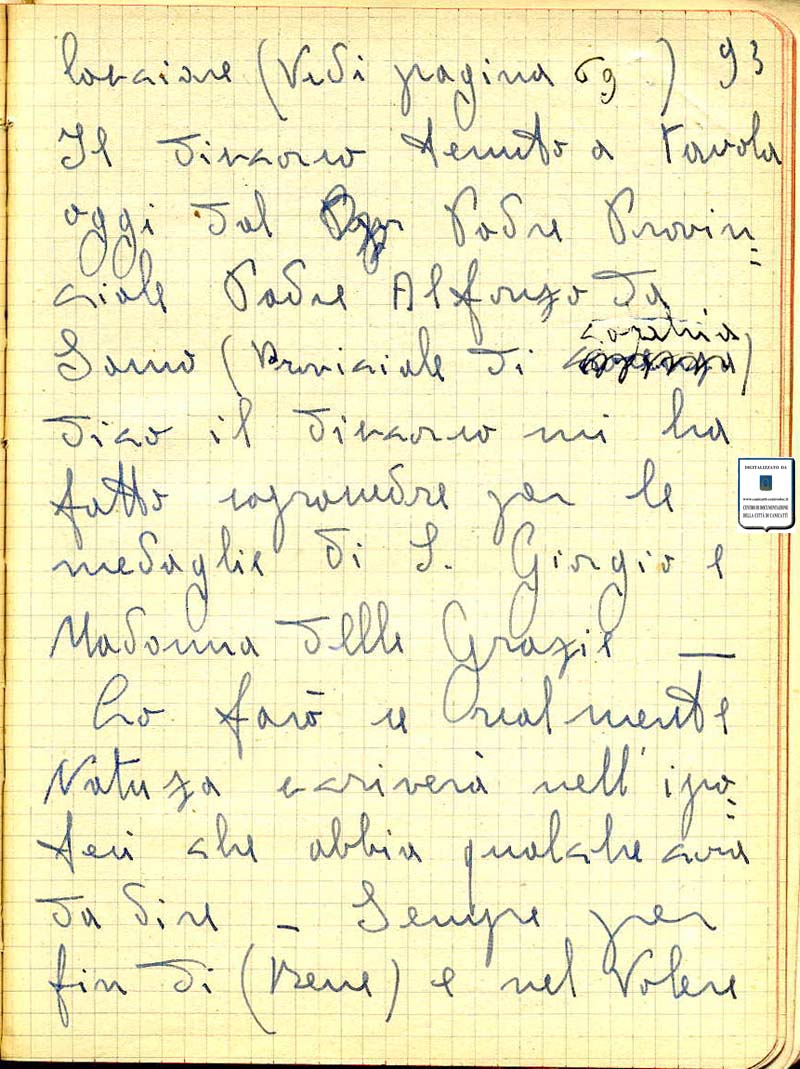 lasciare (Vedi pagina 69) 93
Il discorso tenuto a tavola
oggi dal Padre Provin=
ciale Padre Alfonzo da
Samo (Provinciale di cosenza)
dico il discorso mi ha
fatto soprassedere per le
medaglie di S. Giorgio e
Madonna delle Grazie —
Lo farò se realmente
Natuzza scriverà nell'ipo=
tesi che abbia qualche cosa
da dire - Sempre per
fin di (Bene) e nel Volere
DIGITALIZZATO DA
CENTRO DI DOCUMENTAZIONE
DELLA CITTÀ DI CANICATTÌ